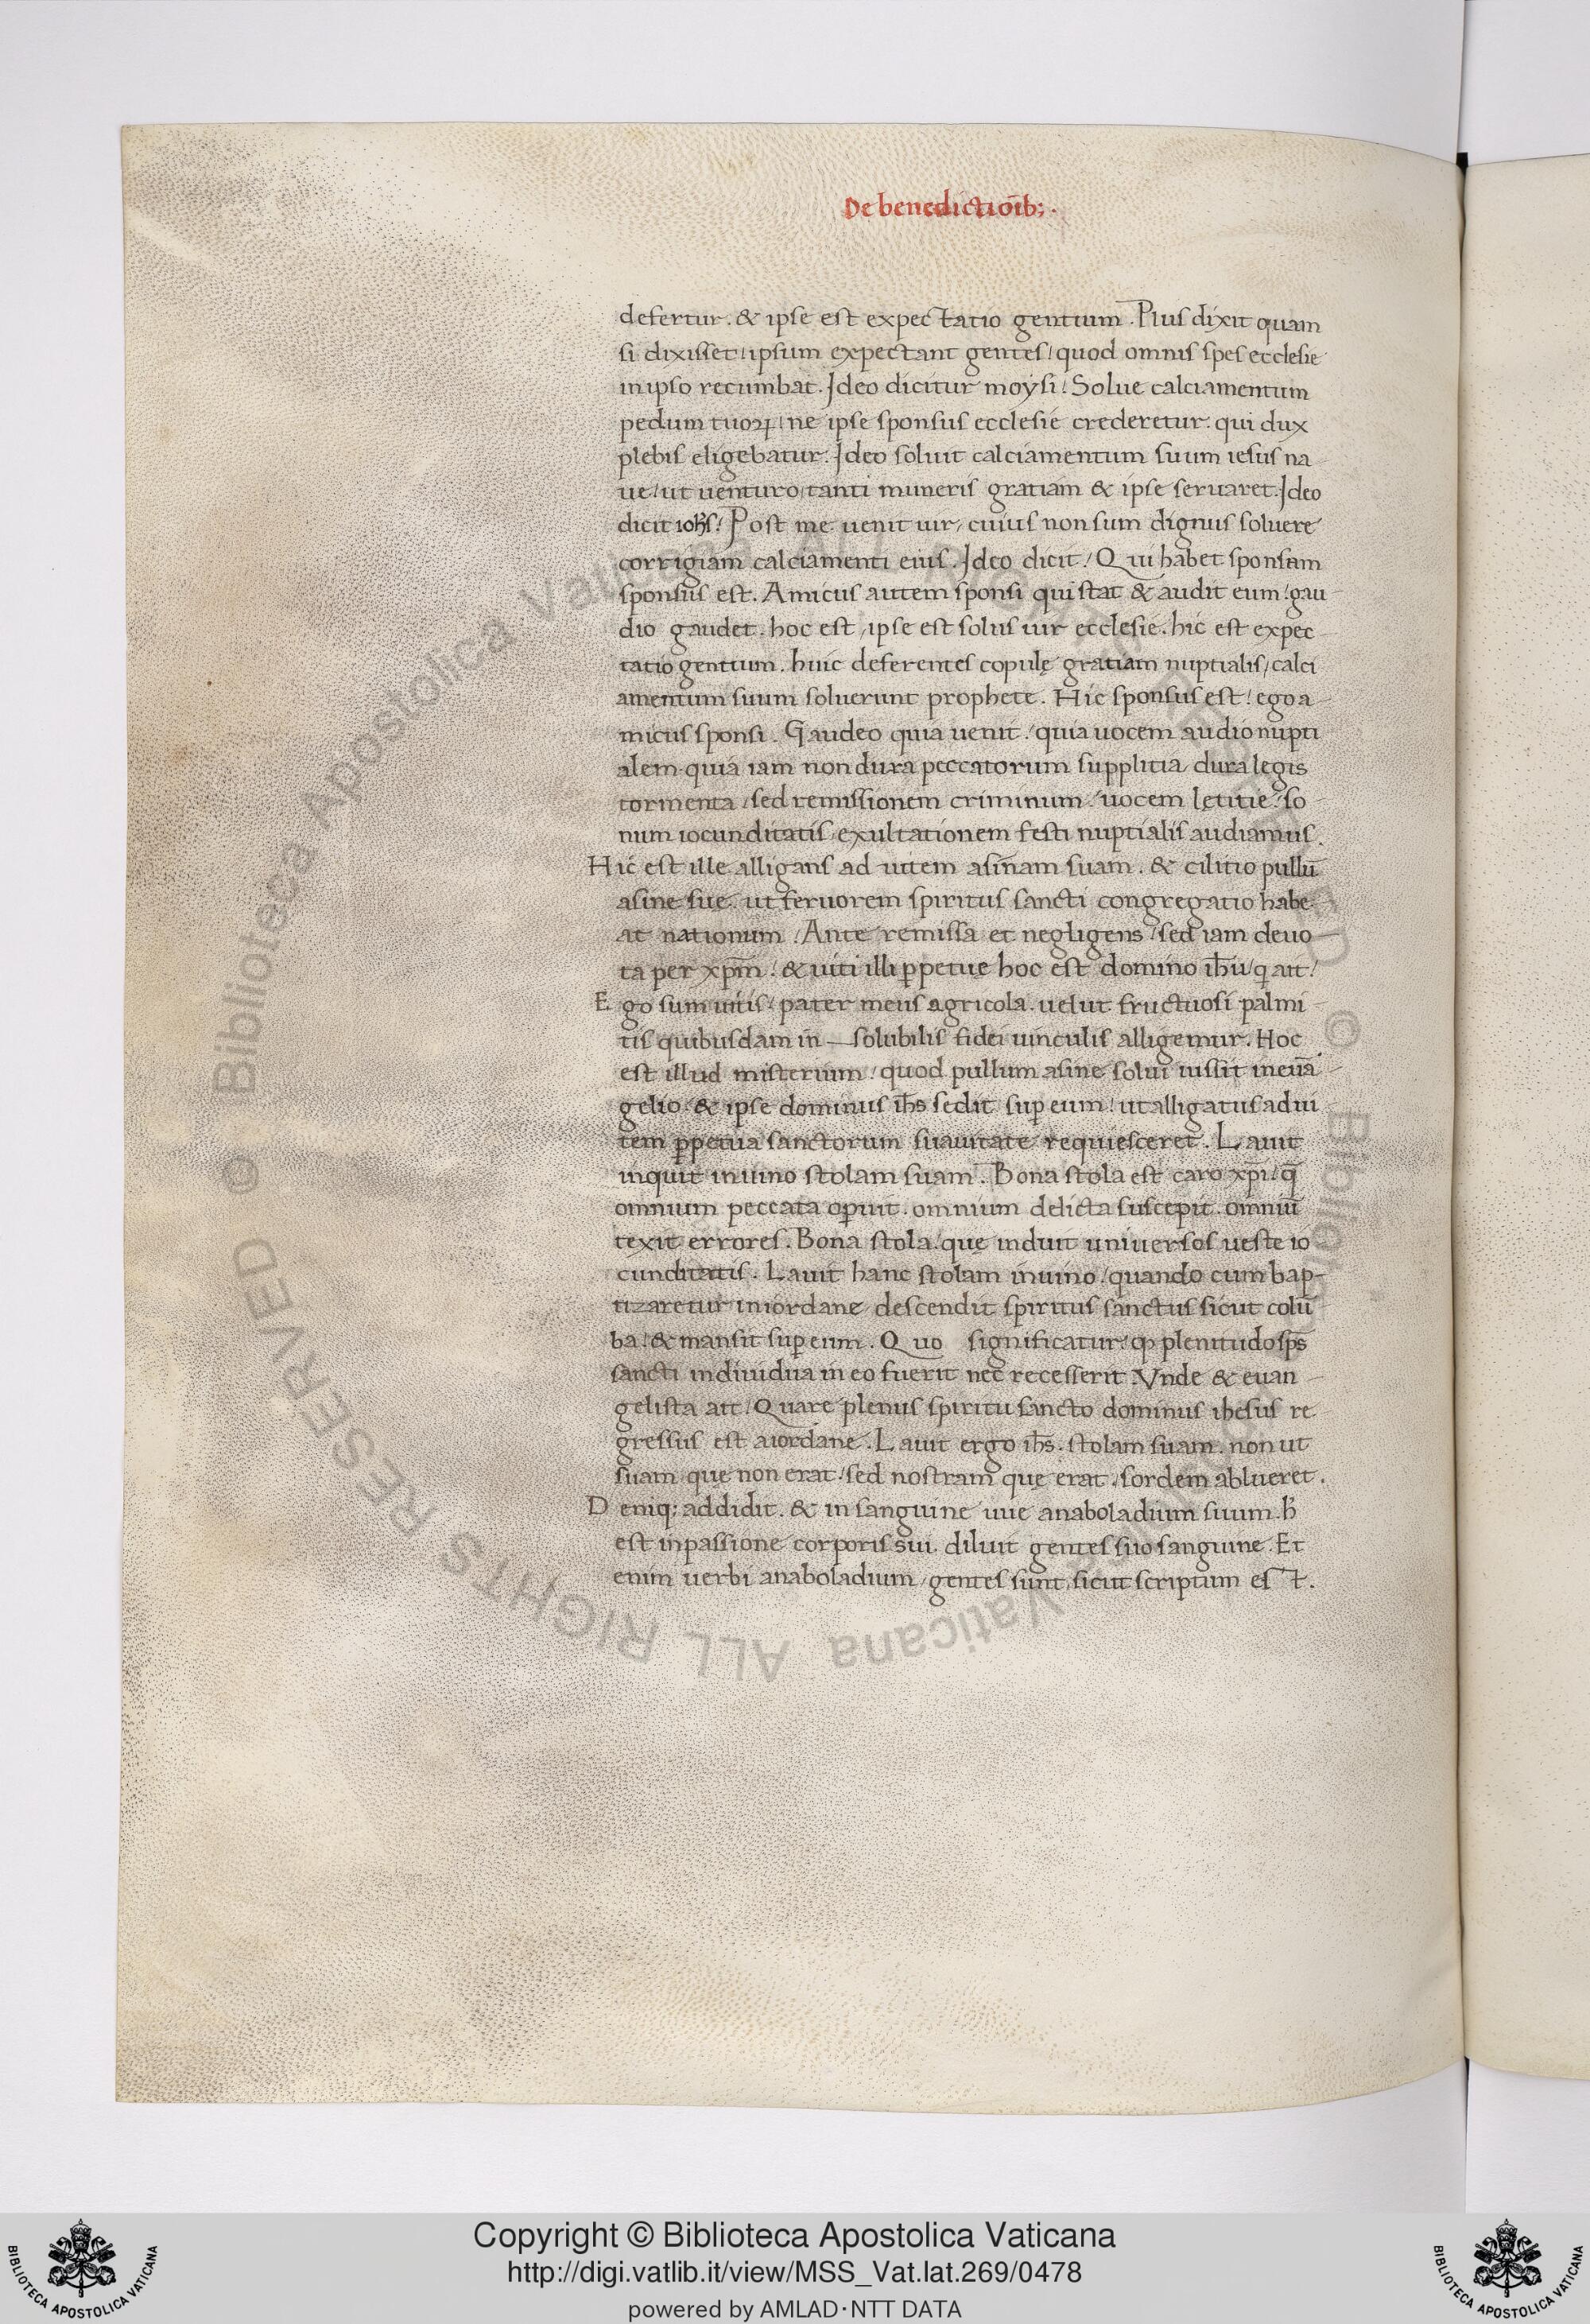 De benedictioīb;.
defertur. & ipse est expectatio gentium. Plus dixit quam
si dixisset/ ipsum expectant gentes/ quod omnis spes ecclesie
in ipso recumbat. Ideo dicitur moysi/ Solue calciamentum
pedum tuoꝝ/ ne ipse sponsus ecclesie crederetur. qui dux
plebis eligebatur. Ideo soluit calciamentum suum iesus na
ue/ ut uenturo/ tanti muneris gratiam & ipse seruaret. Ideo
dicit ioh̄s/ Post me uenit uir, cuius non sum dignus soluere
corrigiam calciamenti eius. Ideo dicit/ Qui habet sponsam
sponsus est. Amicus autem sponsi qui stat & audit eum/ gau
dio gaudet. hoc est, ipse est solus uir ecclesie. hic est expec
tatio gentium. huic deferentes copulę gratiam nuptialis, calci
amentum suum soluerunt prophete. Hic sponsus est/ ego a
micus sponsi. Gaudeo quia uenit/ quia uocem audio nupti
alem. quia iam non dura peccatorum supplitia/ dura legis
tormenta/ sed remissionem criminum/ uocem lętitie/ so
num iocunditatis/ exultationem festi nuptialis audiamus.
Hic est ille alligans ad uitem asinam suam. & cilitio pullū
asine sue. ut feruorem spiritus sancti congregatio habe
at nationum/ Ante remissa et negligens/ sed iam deuo
ta per xp̄m/ & uiti illi ꝑpetuę hoc est domino ih̄u/ q ait/
Ego sum uitis/ pater meus agricola. uelut fructuosi palmi
tis quibusdam in—solubilis fidei uinculis alligemur. Hoc
est illud misterium/ quod pullum asine solui iussit in euā
gelio. & ipse dominus ih̄s sedit suꝑ eum/ ut alligatus ad ui
tem ꝑpetua sanctorum suauitate requiesceret. Lauit
inquit in uino stolam suam. Bona stola est caro xp̄i/ q̄
omnium peccata oꝑuit. omnium delicta suscepit. omniū
texit errores. Bona stola/ quę induit uniuersos ueste io
cunditatis. Lauit hanc stolam in uino/ quando cum bap-
tizaretur in iordane/ descendit spiritus sanctus sicut colū
ba/ & mansit suꝑ eum. Quo significatur/ ꝙ plenitudo sp̄s
sancti indiuidua in eo fuerit nec recesserit. Vnde & euan
gelista ait/ Quare plenus spiritu sancto dominus ihesus re
gressus est a iordane. Lauit ergo ih̄s. stolam suam. non ut
suam quę non erat/ sed nostram quę erat/ sordem ablueret.
Deniq; addidit. & in sanguine uue anaboladium suum. h̄
est in passione corporis sui. diluit gentes suo sanguine. Et
enim uerbi anaboladium/ gentes sunt, sicut scriptum est.
Copyright © Biblioteca Apostolica Vaticana
http://digi.vatlib.it/view/MSS_Vat.lat.269/0478
powered by AMLAD·NTT DATA